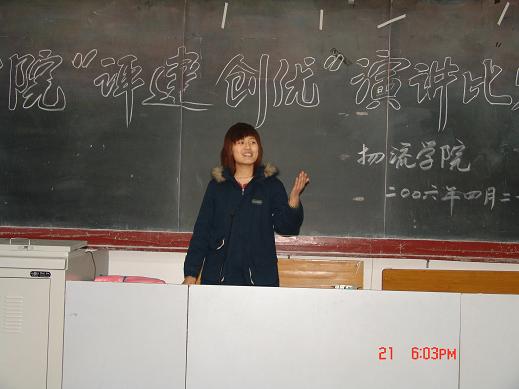 院“评建创优”演讲比
物流学院
二〇〇六年四月二
21 6:03PM